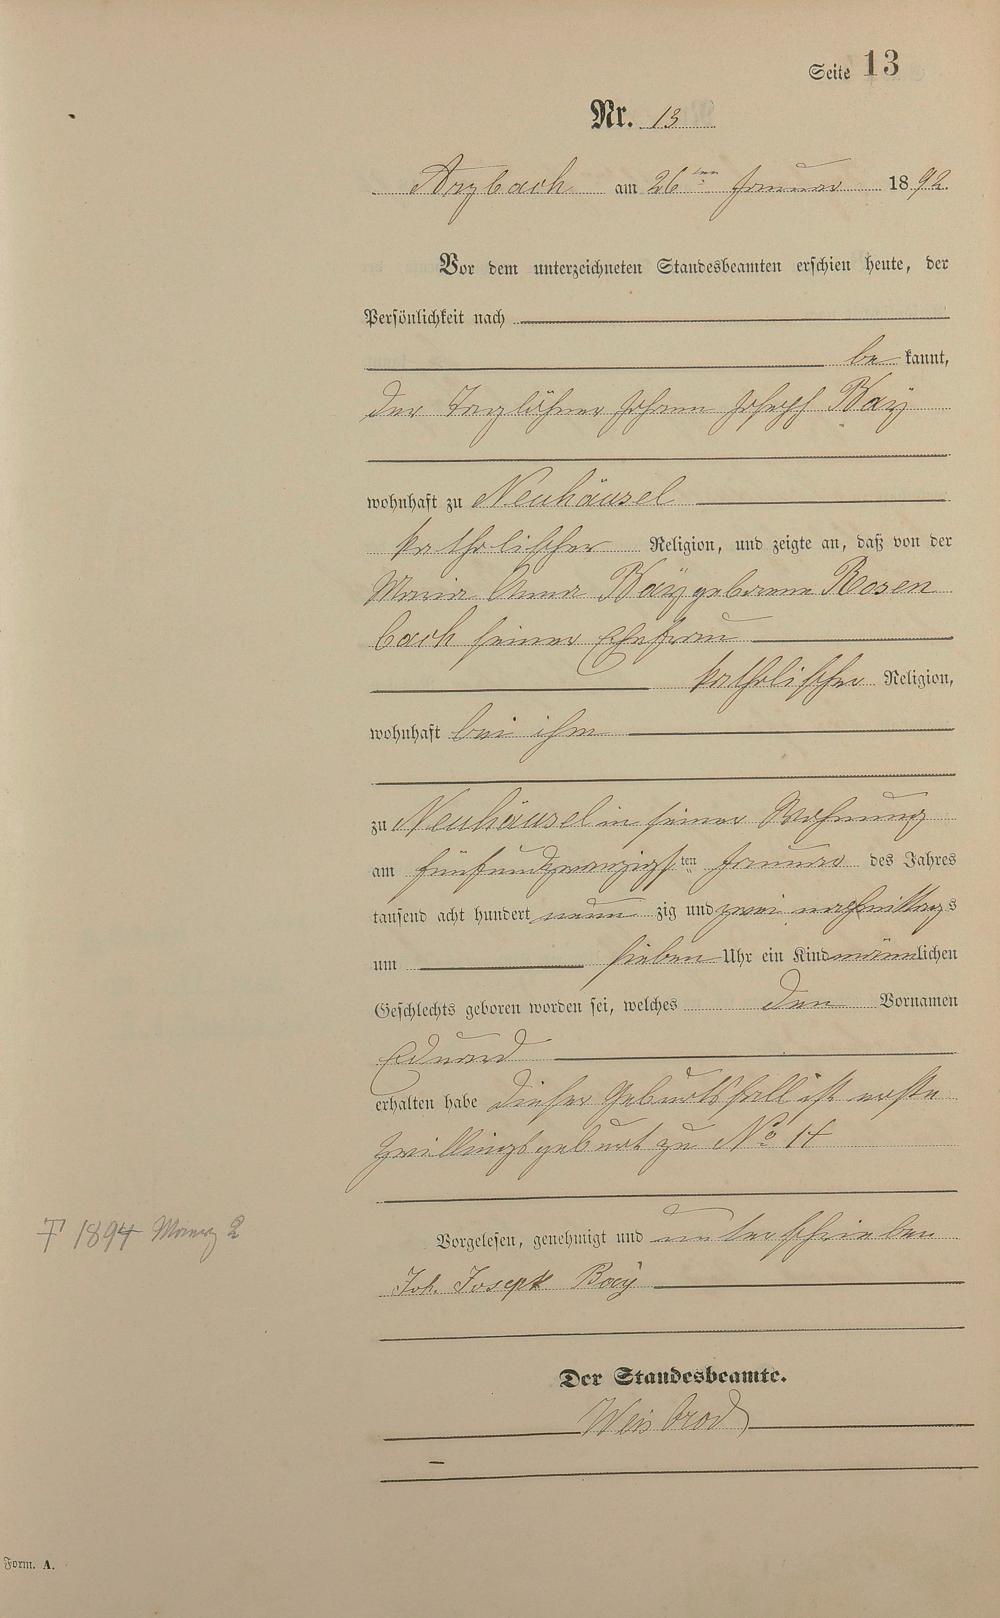 Seite 13
Nr. 13
Arzbach am 26ten Januar 1892.
Vor dem unterzeichneten Standesbeamten erschien heute, der
Persönlichkeit nach
be kannt,
der Taglöhner Johann Joseph Bay
wohnhaft zu Neuhäusel
katholischer Religion, und zeigte an, daß von der
Maria Anna Bay geborene Rosen
bach seiner Ehefrau
katholischer Religion,
wohnhaft bei ihm
zu Neuhäusel in seiner Wohnung
am fünfundzwanzigsten Januar des Jahres
tausend acht hundert neun zig und zwei nachmittags
um sieben Uhr ein Kind männlichen
Geschlechts geboren worden sei, welches den Vornamen
Eduard
erhalten habe dieser Geburtsfall ist erste
Zwillingsgeburt zu No 14
† 1894 Maerz 2
Vorgelesen, genehmigt und unterschrieben
Joh. Joseph Baÿ
Der Standesbeamte.
Weisbrod
Form. A.